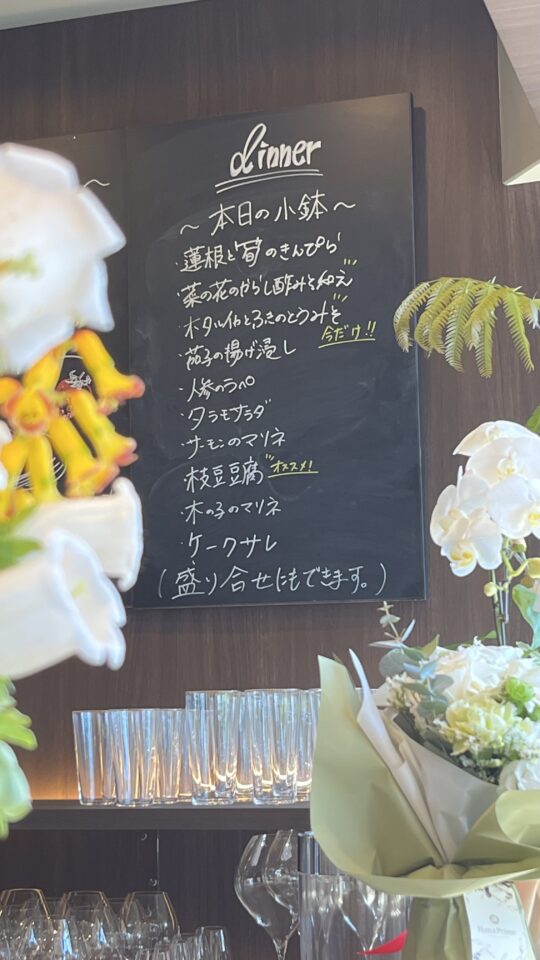 dinner
〜本日の小鉢〜
・蓮根と筍のきんぴら
・菜の花のからし酢みそ和え
・ホタルイカとふきのとうみそ
今だけ!!
・茄子の揚げ浸し
・人参のラペ
・タラモサラダ
・サーモンのマリネ
・枝豆豆腐 オススメ!
・木の子のマリネ
・ケークサレ
(盛り合せにもできます。)